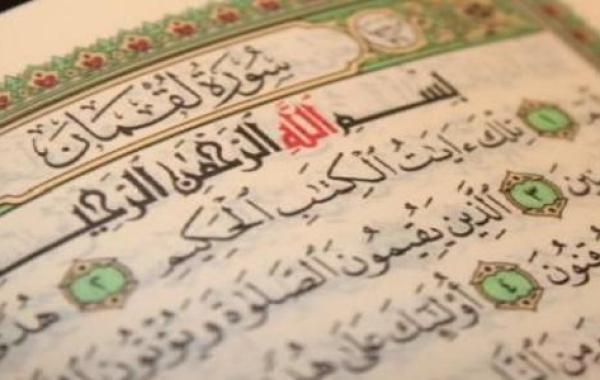 سُورَةُ لُقْمَانَ
بِسْمِ اللَّهِ الرَّحْمَٰنِ الرَّحِيمِ
١ تِلْكَ ءَايَٰتُ ٱلْكِتَٰبِ ٱلْحَكِيمِ
٢ هُدًى
٣ ٱلَّذِينَ يُقِيمُونَ ٱلصَّلَوٰةَ وَيُؤْتُونَ
٤ أُو۟لَٰٓئِكَ عَلَىٰ هُدًى